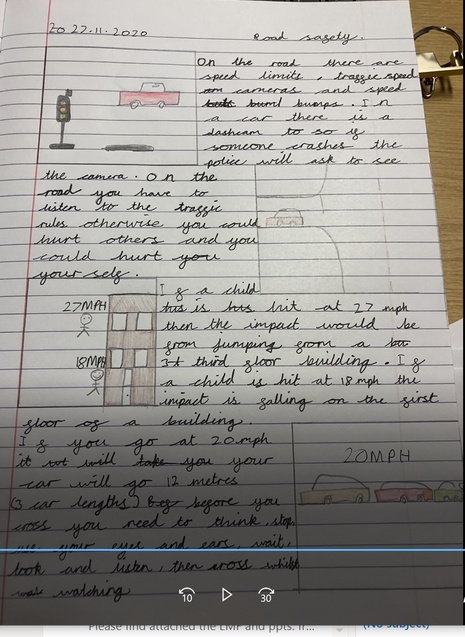 20 27.11.2020
Road safety.
On the road there are
speed limits, traffic speed
cameras and speed
bumps. In
a car there is a
dashcam to so if
someone crashes the
police will ask to see
the camera. On the
road you have to
listen to the traffic
rules otherwise you could
hurt others and you
could hurt you
your self.
If a child
27MPH
this is hit at 27 mph
then the impact would be
from jumping from a
3rd third floor building. If
18MPH
a child is hit at 18 mph the
impact is falling on the first
floor of a building.
If you go at 20mph
it will take you your
20MPH
car will go 12 metres
(3 car lengths) before you
cross you need to think, stop,
use your eyes and ears, wait,
look and listen, then cross whilst
watching
10
30
Please find attached the LMP and ppts.
(No subject)